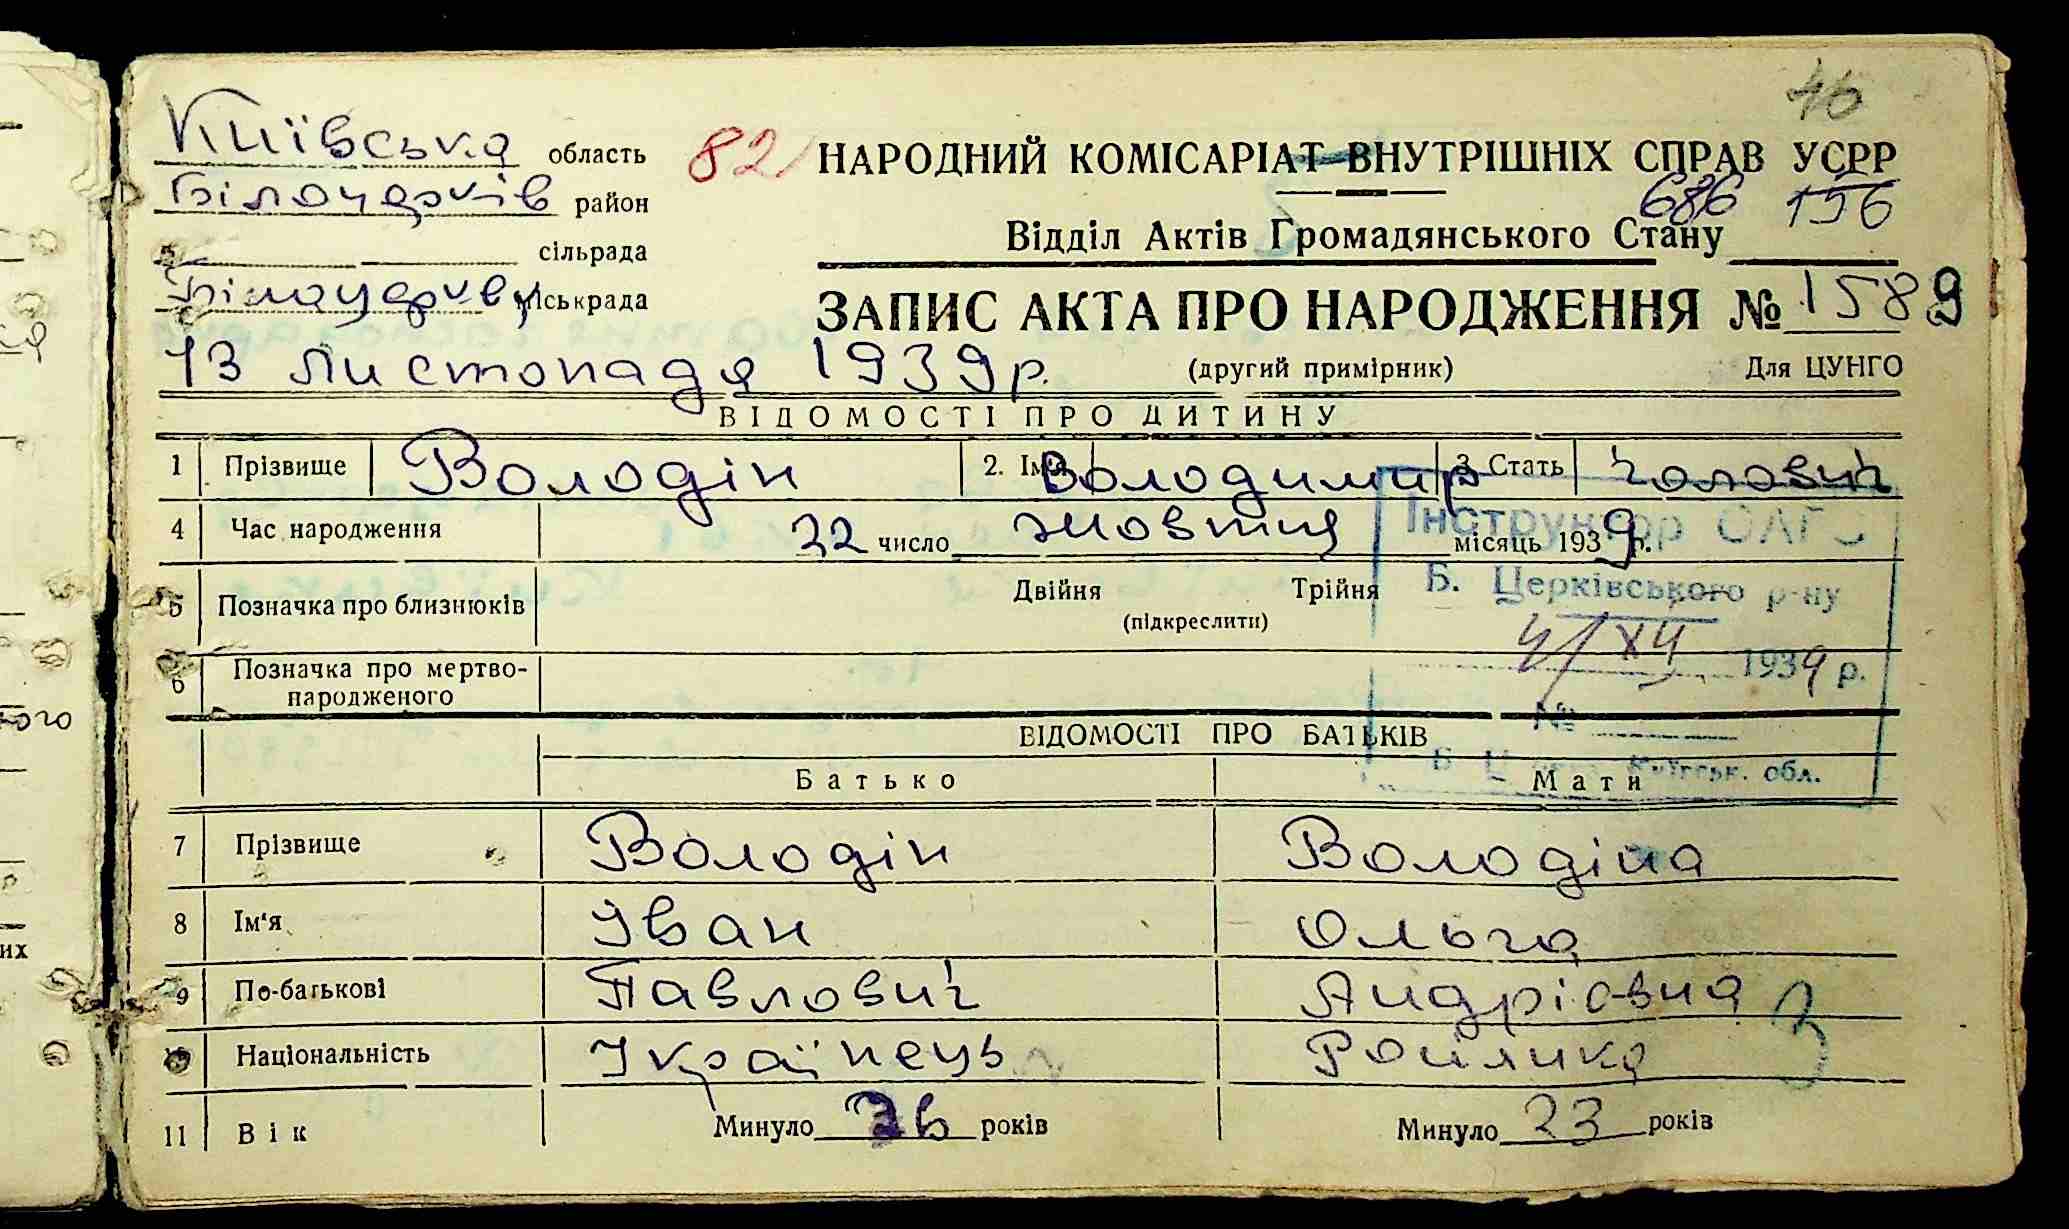 46
Київська область
82
НАРОДНИЙ КОМІСАРІАТ ВНУТРІШНІХ СПРАВ УСРР
Білоцерків район
686 156
сільрада
Відділ Актів Громадянського Стану
міськрада
ЗАПИС АКТА ПРО НАРОДЖЕННЯ № 1589
13 листопада 1939 р.
(другий примірник) Для ЦУНГО
ВІДОМОСТІ ПРО ДИТИНУ
1 Прізвище Володін 2. Ім'я Володимир 3. Стать чоловіч
4 Час народження 22 число жовтня місяць 1939 р.
Інструктор ОАГС
Б. Церківського р-ну
5 Позначка про близнюків Двійня Трійня
(підкреслити)
6 Позначка про мертво-
народженого
1939 р.
№
ВІДОМОСТІ ПРО БАТЬКІВ
Київськ. обл.
Батько Мати
7 Прізвище Володін Володіна
8 Ім'я Іван Ольга
9 По-батькові Павлович Андріовна
3
10 Національність Українець
11 Вік Минуло років Минуло 23 років
ого
их